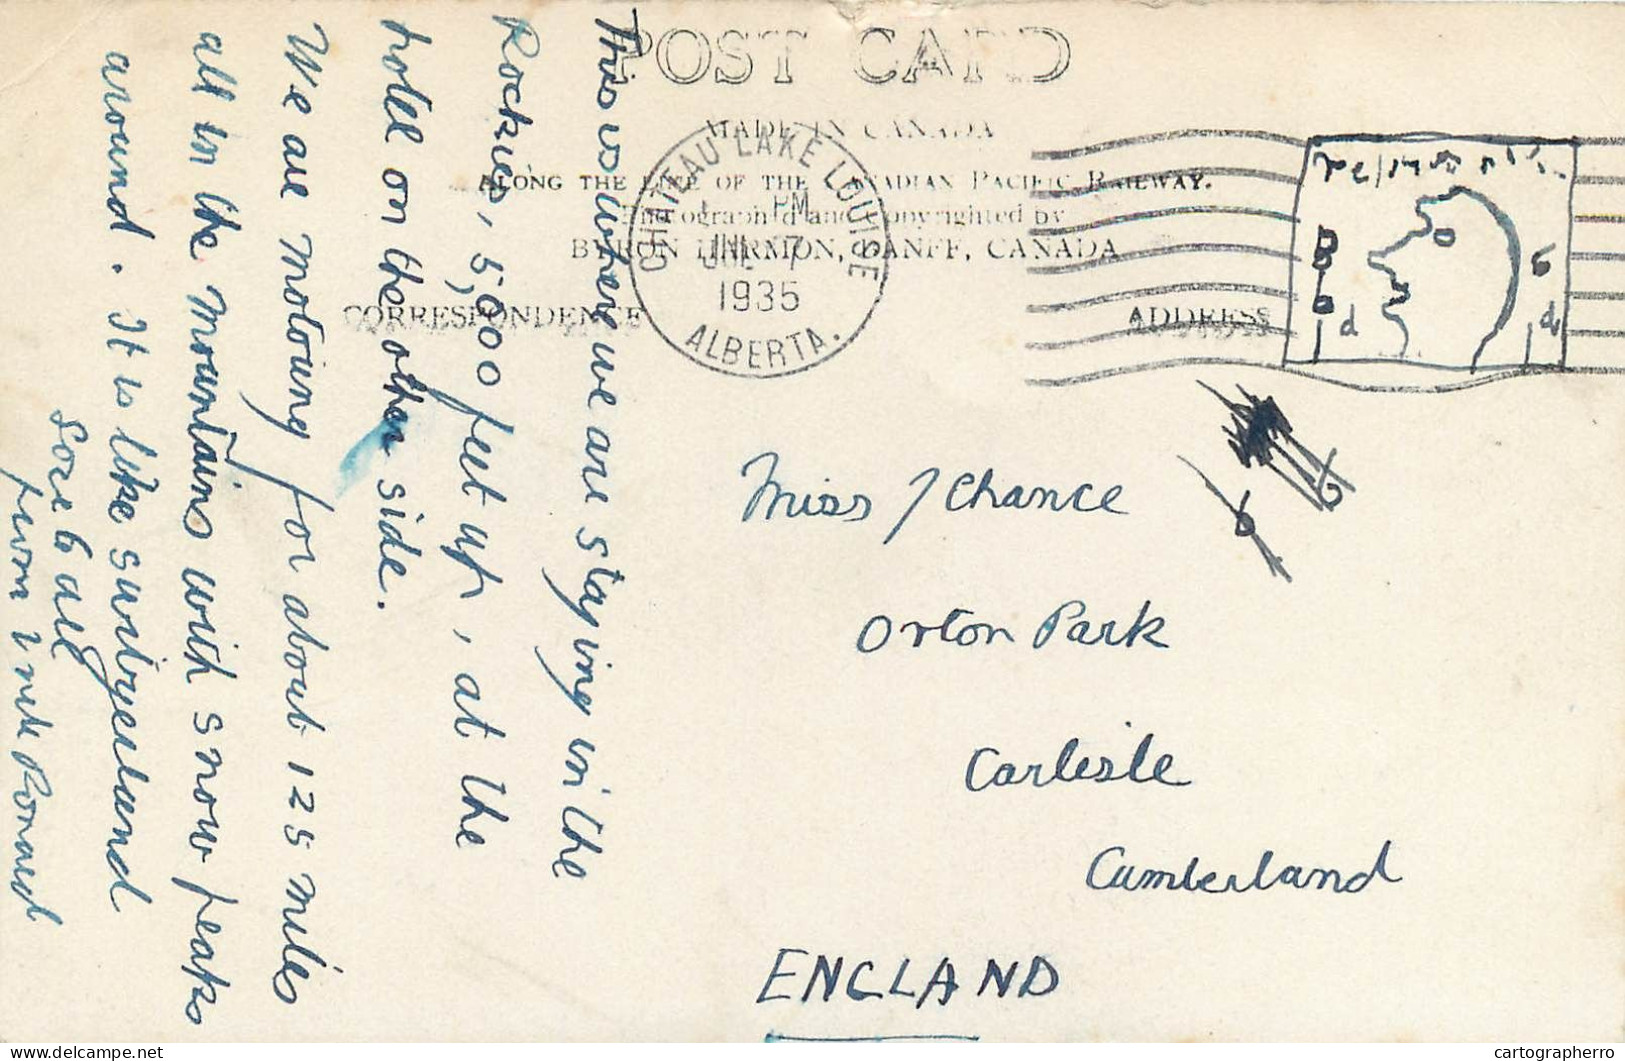 POST CARD
MADE IN CANADA
ALONG THE LINE OF THE CANADIAN PACIFIC RAILWAY.
Photographed and Copyrighted by
BYRON HARMON, BANFF, CANADA
CORRESPONDENCE
ADDRESS
CHATEAU LAKE LOUISE
PM
JUL 7
1935
ALBERTA.
This is where we are staying in the
Rockies, 5,000 feet up, at the
hotel on the other side.
We are motoring for about 125 miles
all in the mountains with snow peaks
around. It is like switzerland
Love to all
from
Ronald
Miss J Chance
Orton Park
Carlisle
Cumberland
ENGLAND
cartographerro